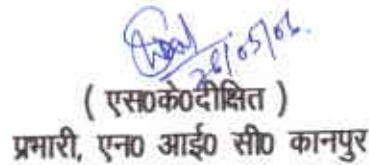 28/05/06.
( एस०के०दीक्षित )
प्रभारी, एन० आई० सी० कानपुर